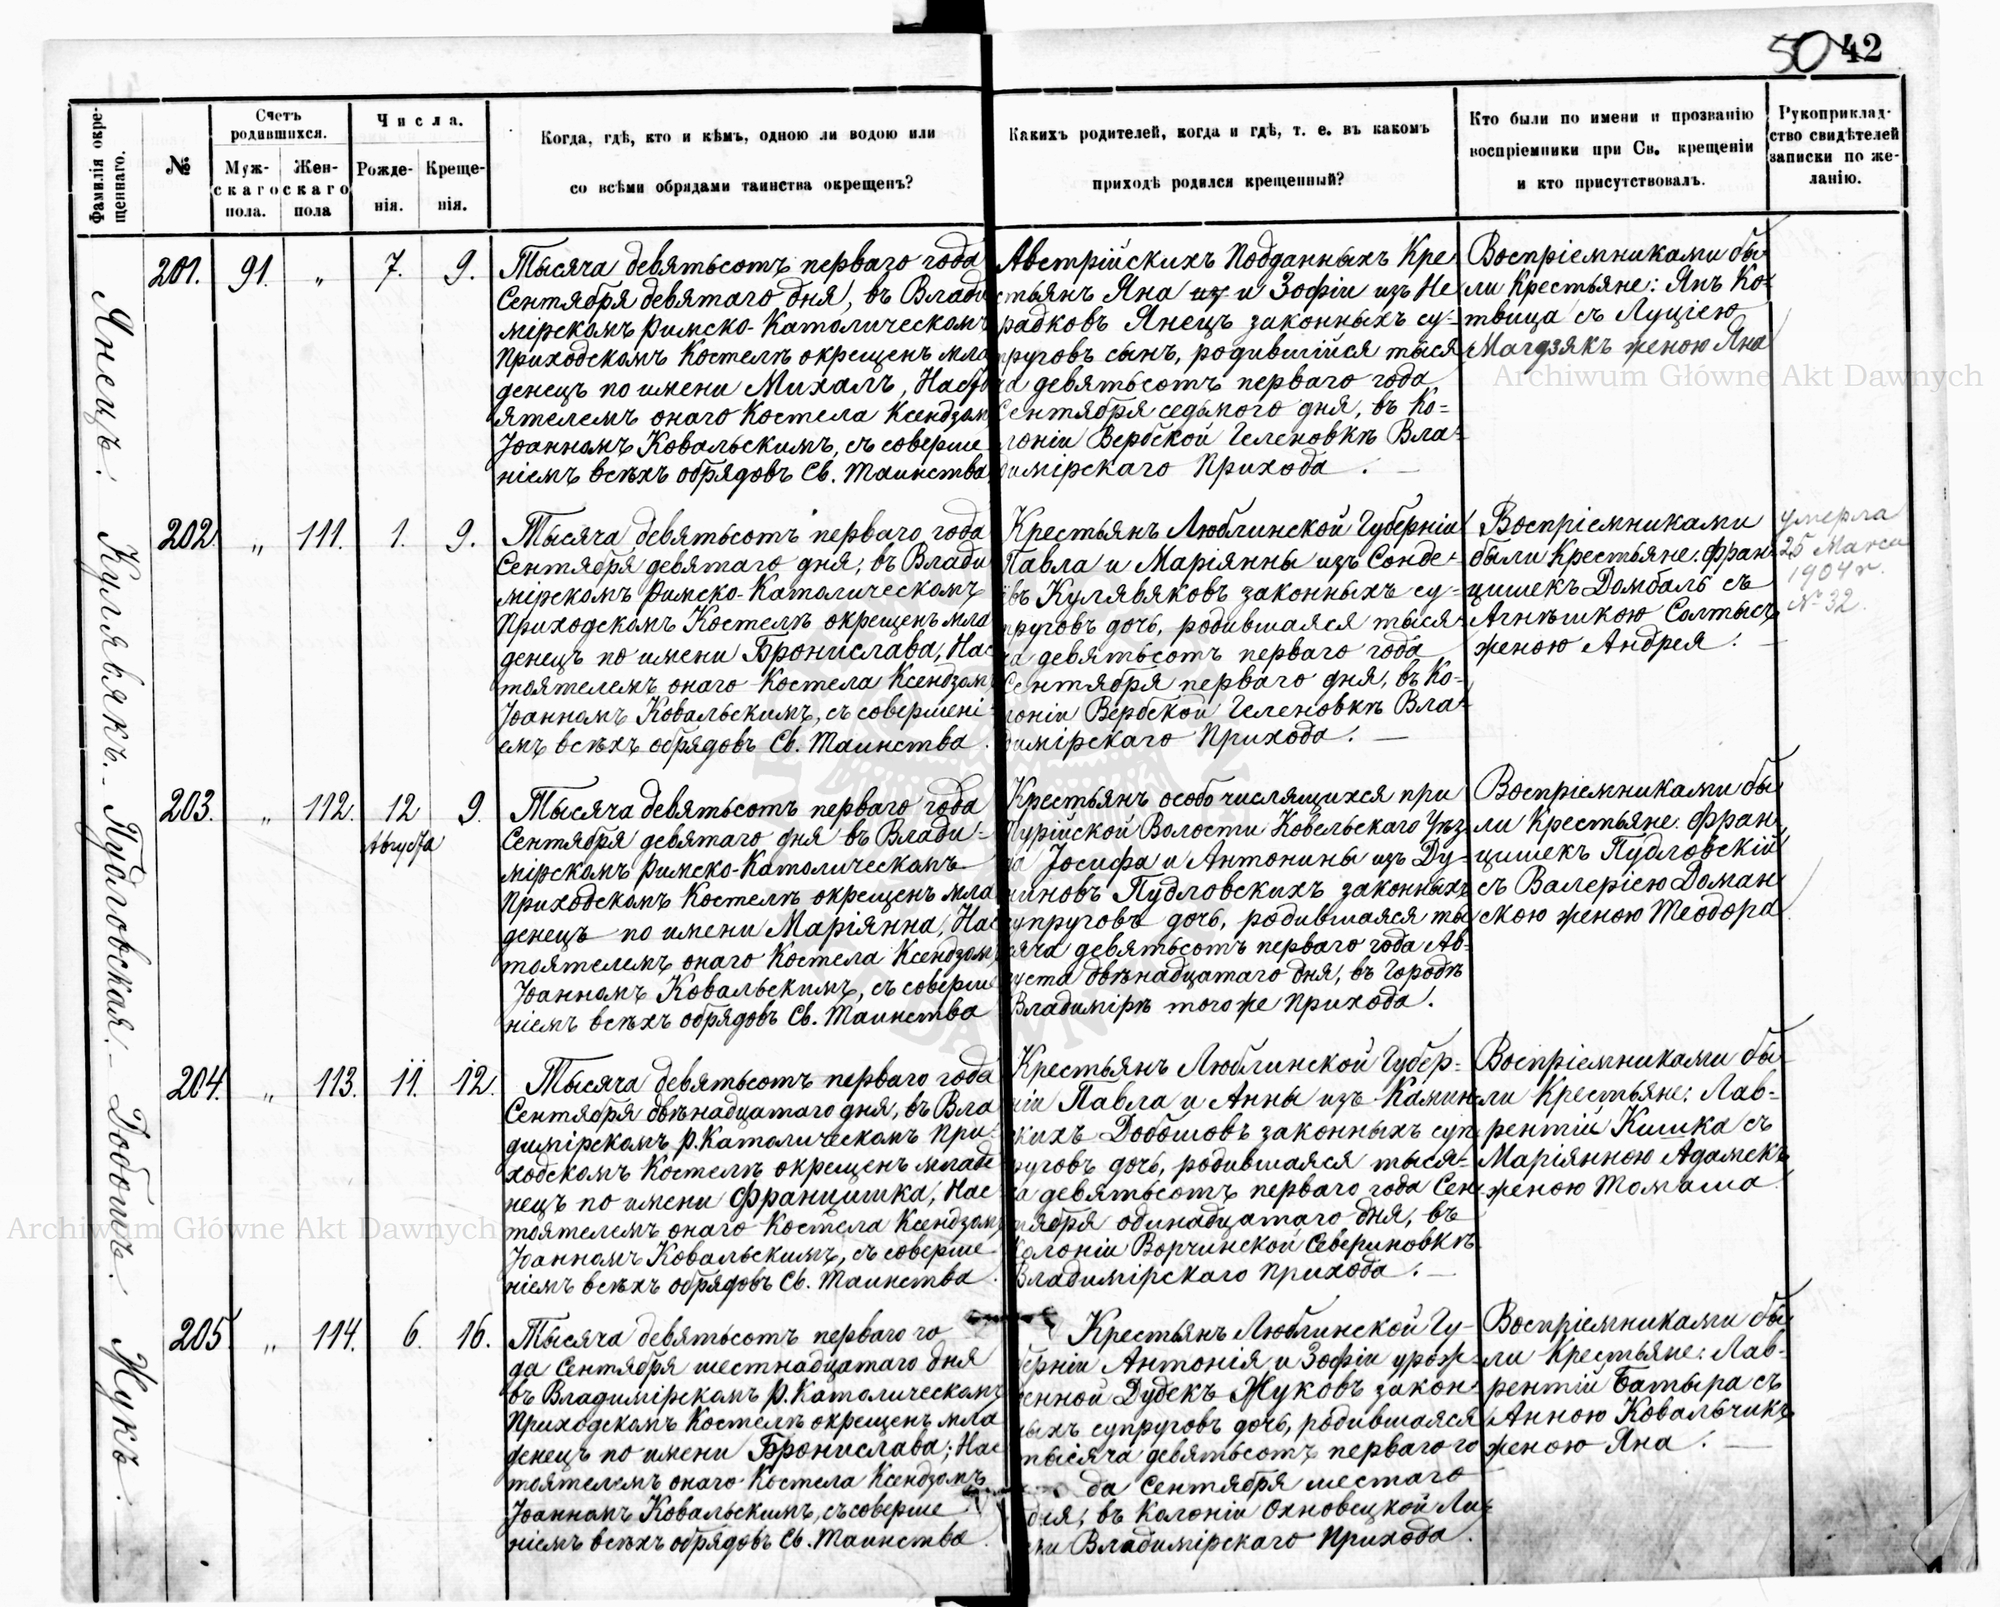 50 42
Фамилія окре-
щеннаго.
№
Счетъ
родившихся.
Муж-
скаго
пола.
Жен-
скаго
пола
Числа.
Рожде-
нія.
Креще-
нія.
Когда, гдѣ, кто и кѣмъ, одною ли водою или
со всѣми обрядами таинства окрещенъ?
Какихъ родителей, когда и гдѣ, т. е. въ какомъ
приходѣ родился крещенный?
Кто были по имени и прозванію
воспріемники при Св. крещеніи
и кто присутствовалъ.
Рукоприклад-
ство свидѣтелей
записки по же-
ланію.
Янецъ.
201. 91. „ 7. 9.
Тысяча девятьсотъ перваго года
Сентября девятаго дня, въ Влади
мірскомъ Римско-Католическомъ
Приходскомъ Костелѣ окрещенъ мла
денецъ по имени Михалъ, Насто
ятелемъ онаго Костела Ксендзомъ
Іоанномъ Ковальскимъ, съ соверше
ніемъ всѣхъ обрядовъ Св. Таинства
Австрійскихъ Подданныхъ Кре
стьянъ Яна и Зофіи изъ Не
радковъ Янецъ законныхъ су-
пруговъ сынъ, родившійся тыся
ча девятьсотъ перваго года
Сентября седьмого дня, въ Ко-
лоніи Вербской Геленовкѣ Вла-
димірскаго Прихода.
Воспріемниками бы
ли Крестьяне: Янъ Ко-
твица съ Луціею
Магдзякъ женою Яна
Кулявякъ.
202. „ 111. 1. 9.
Тысяча девятьсотъ перваго года
Сентября девятаго дня, въ Влади
мірскомъ Римско-Католическомъ
Приходскомъ Костелѣ окрещенъ мла
денецъ по имени Бронислава, Нас
тоятелемъ онаго Костела Ксендзомъ
Іоанномъ Ковальскимъ, съ совершені-
емъ всѣхъ обрядовъ Св. Таинства.
Крестьянъ Люблинской Губерніи
Павла и Маріянны изъ Сонде-
евъ Кулявяковъ законныхъ су-
пруговъ дочь, родившаяся тыся
ча девятьсотъ перваго года
Сентября перваго дня, въ Ко-
лоніи Вербской Геленовкѣ Вла-
димірскаго Прихода.
Воспріемниками
были Крестьяне: Фран
цишекъ Домбаль съ
Агнѣшкою Солтысъ
женою Андрея.
умерла
25 Марта
1904 г.
№ 32.
Пудловская.
203. „ 112. 12 Августа 9.
Тысяча девятьсотъ перваго года
Сентября девятаго дня въ Влади-
мірскомъ Римско-Католическомъ
Приходскомъ Костелѣ окрещенъ мла
денецъ по имени Маріянна, Нас
тоятелемъ онаго Костела Ксендзомъ
Іоанномъ Ковальскимъ, съ соверше
ніемъ всѣхъ обрядовъ Св. Таинства
Крестьянъ особо числящихся при
Турійской Волости Ковельскаго Уѣз
да Іосифа и Антонины изъ Ду-
Пудловскихъ законныхъ
супруговъ дочь, родившаяся ты
сяча девятьсотъ перваго года Ав-
густа двѣнадцатаго дня, въ Городѣ
Владимірѣ того же Прихода.
Воспріемниками бы
ли Крестьяне: Фран
цишекъ Пудловскій
съ Валеріею Доман
скою женою Теодора
Добошъ.
204. „ 113. 11. 12.
Тысяча девятьсотъ перваго года
Сентября двѣнадцатаго дня, въ Вла
димірскомъ Р. Католическомъ При
ходскомъ Костелѣ окрещенъ младе
нецъ по имени Францишка, Нас
тоятелемъ онаго Костела Ксендзомъ
Іоанномъ Ковальскимъ, съ соверше
ніемъ всѣхъ обрядовъ Св. Таинства.
Крестьянъ Люблинской Губер-
ніи Павла и Анны изъ Камин
скихъ Добошовъ законныхъ суп
руговъ дочь, родившаяся тыся-
ча девятьсотъ перваго года Сен
тября одинадцатаго дня, въ
Колоніи Ворчинской Севериновкѣ
Владимірскаго Прихода.
Воспріемниками бы
ли Крестьяне: Лав-
рентій Кишка съ
Маріянною Адамекъ
женою Томаша
Жукъ.
205. „ 114. 6. 16.
Тысяча девятьсотъ перваго го
да Сентября шестнадцатаго дня
въ Владимірскомъ Р. Католическомъ
Приходскомъ Костелѣ окрещенъ мла
денецъ по имени Бронислава; Нас
тоятелемъ онаго Костела Ксендзомъ
Іоанномъ Ковальскимъ, съ соверше
ніемъ всѣхъ обрядовъ Св. Таинства.
Крестьянъ Люблинской Гу-
берніи Антонія и Зофіи урож-
денной Дудекъ Жуковъ закон-
ныхъ супруговъ дочь, родившаяся
тысяча девятьсотъ перваго го
да Сентября шестаго
дня, въ Колоніи Охновецкой Ли-
Владимірскаго Прихода.
Воспріемниками бы
ли Крестьяне: Лав-
рентій Батыра съ
Анною Ковальчикъ
женою Яна.
Archiwum Główne Akt Dawnych
Archiwum Główne Akt Dawnych